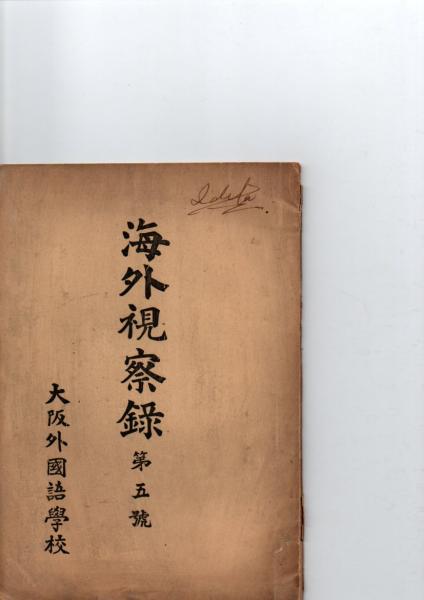 海外視察錄 第五號
大阪外國語學校